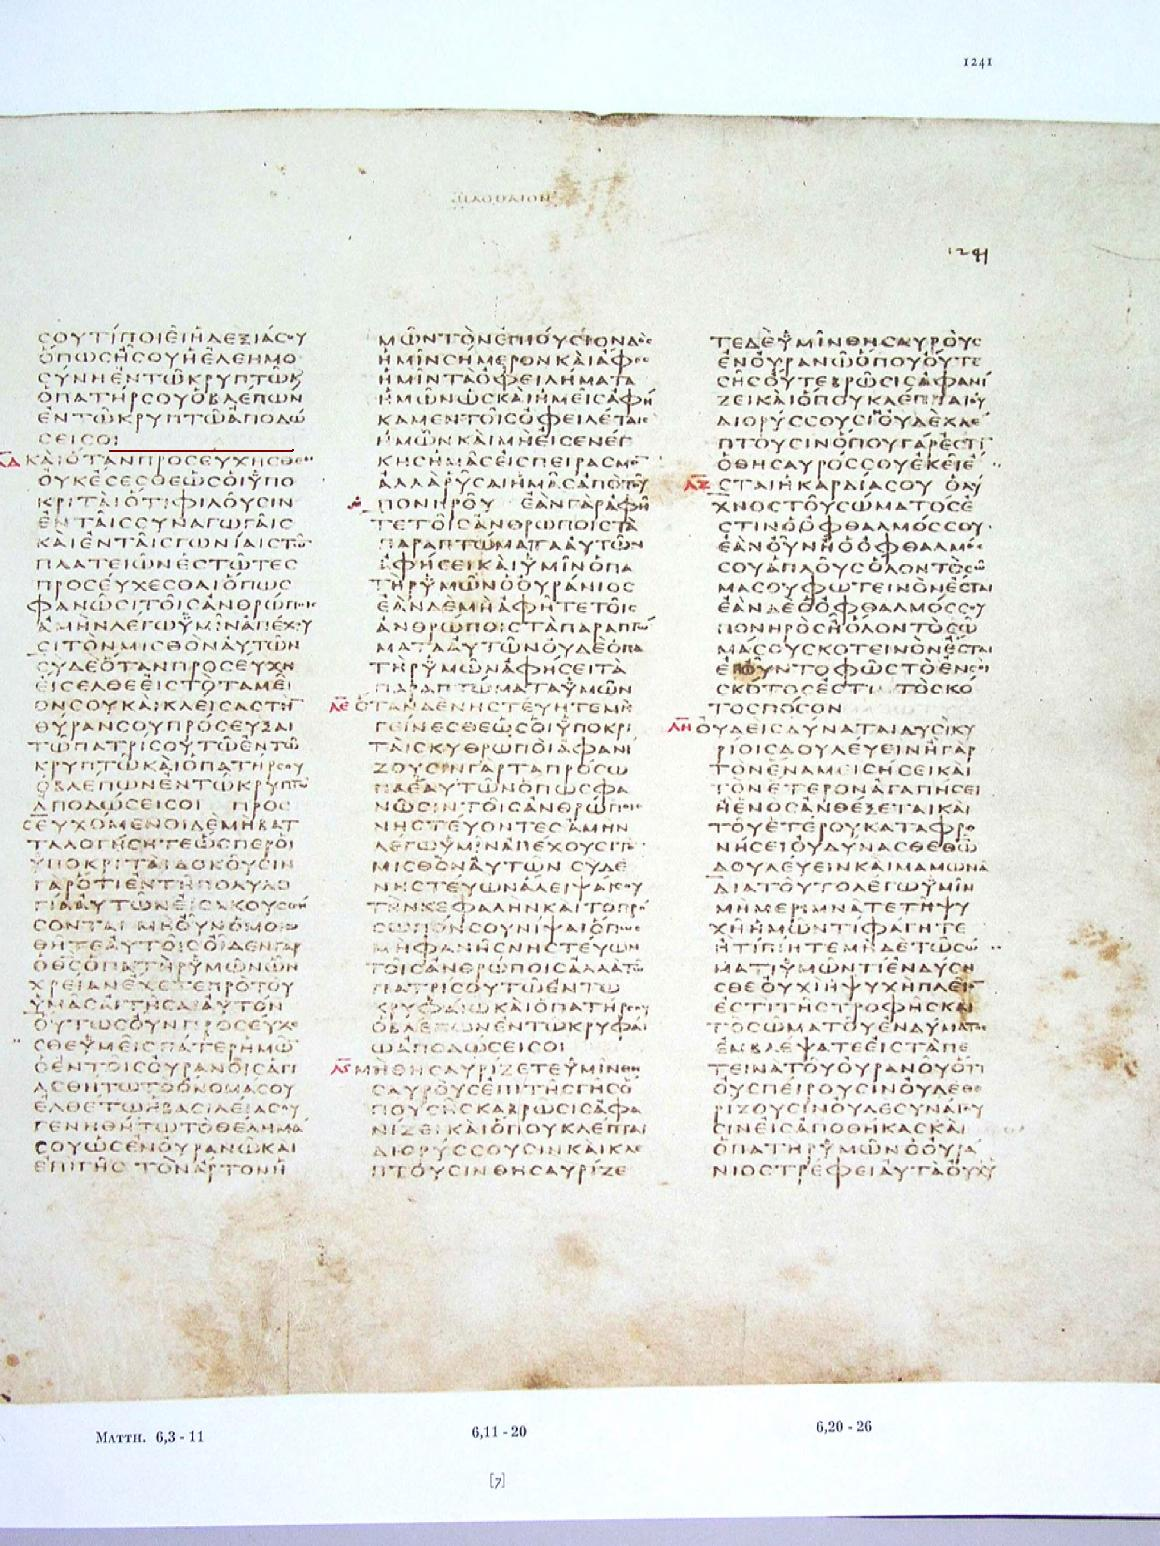 1241
1241
ϹΟΥΤΙΠΟΙΕΙΗΔΕΞΙΑϹΟΥ
ΟΠΩϹΗϹΟΥΗΕΛΕΗΜΟ
ϹΥΝΗΕΝΤΩΚΡΥΠΤΩΚ
ΟΠΑΤΗΡϹΟΥΟΒΛΕΠΩΝ
ΕΝΤΩΚΡΥΠΤΩΑΠΟΔΩ
ϹΕΙϹΟΙ
ΚΑΙΟΤΑΝΠΡΟϹΕΥΧΗϹΘΕ
ΟΥΚΕϹΕϹΘΕΩϹΟΙΫΠΟ
ΚΡΙΤΑΙΟΤΙΦΙΛΟΥϹΙΝ
ΕΝΤΑΙϹϹΥΝΑΓΩΓΑΙϹ
ΚΑΙΕΝΤΑΙϹΓΩΝΙΑΙϹΤΩ
ΠΛΑΤΕΙΩΝΕϹΤΩΤΕϹ
ΠΡΟϹΕΥΧΕϹΘΑΙΟΠΩϹ
ΦΑΝΩϹΙΤΟΙϹΑΝΘΡΩΠΟΙϹ
ΑΜΗΝΛΕΓΩΫΜΙΝΑΠΕΧΟΥ
ϹΙΤΟΝΜΙϹΘΟΝΑΥΤΩΝ
ϹΥΔΕΟΤΑΝΠΡΟϹΕΥΧΗ
ΕΙϹΕΛΘΕΕΙϹΤΟΤΑΜΕΙ
ΟΝϹΟΥΚΑΙΚΛΕΙϹΑϹΤΗ
ΘΥΡΑΝϹΟΥΠΡΟϹΕΥΞΑΙ
ΤΩΠΑΤΡΙϹΟΥΤΩΕΝΤΩ
ΚΡΥΠΤΩΚΑΙΟΠΑΤΗΡϹΟΥ
ΟΒΛΕΠΩΝΕΝΤΩΚΡΥΠΤΩ
ΑΠΟΔΩϹΕΙϹΟΙ ΠΡΟϹ
ΕΥΧΟΜΕΝΟΙΔΕΜΗΒΑΤ
ΤΑΛΟΓΗϹΗΤΕΩϹΠΕΡΟΙ
ΫΠΟΚΡΙΤΑΙΔΟΚΟΥϹΙΝ
ΓΑΡΟΤΙΕΝΤΗΠΟΛΥΛΟ
ΓΙΑΑΥΤΩΝΕΙϹΑΚΟΥϹΘΗ
ϹΟΝΤΑΙΜΗΟΥΝΟΜΟΙΩ
ΘΗΤΕΑΥΤΟΙϹΟΙΔΕΝΓΑΡ
ΟΘϹΟΠΑΤΗΡΫΜΩΝΩΝ
ΧΡΕΙΑΝΕΧΕΤΕΠΡΟΤΟΥ
ΫΜΑϹΑΙΤΗϹΑΙΑΥΤΟΝ
ΟΥΤΩϹΟΥΝΠΡΟϹΕΥΧΕ
ϹΘΕΫΜΕΙϹΠΑΤΕΡΗΜΩ
ΟΕΝΤΟΙϹΟΥΡΑΝΟΙϹΑΓΙ
ΑϹΘΗΤΩΤΟΟΝΟΜΑϹΟΥ
ΕΛΘΕΤΩΗΒΑϹΙΛΕΙΑϹΟΥ
ΓΕΝΗΘΗΤΩΤΟΘΕΛΗΜΑ
ϹΟΥΩϹΕΝΟΥΡΑΝΩΚΑΙ
ΕΠΙΓΗϹ ΤΟΝΑΡΤΟΝΗ
ΜΩΝΤΟΝΕΠΙΟΥϹΙΟΝΔΟϹ
ΗΜΙΝϹΗΜΕΡΟΝΚΑΙΑΦΕϹ
ΗΜΙΝΤΑΟΦΕΙΛΗΜΑΤΑ
ΗΜΩΝΩϹΚΑΙΗΜΕΙϹΑΦΗ
ΚΑΜΕΝΤΟΙϹΟΦΕΙΛΕΤΑΙϹ
ΗΜΩΝΚΑΙΜΗΕΙϹΕΝΕΓ
ΚΗϹΗΜΑϹΕΙϹΠΕΙΡΑϹΜΟ
ΑΛΛΑΡΥϹΑΙΗΜΑϹΑΠΟΤΟΥ
ΠΟΝΗΡΟΥ ΕΑΝΓΑΡΑΦΗ
ΤΕΤΟΙϹΑΝΘΡΩΠΟΙϹΤΑ
ΠΑΡΑΠΤΩΜΑΤΑΑΥΤΩΝ
ΑΦΗϹΕΙΚΑΙΫΜΙΝΟΠΑ
ΤΗΡΫΜΩΝΟΟΥΡΑΝΙΟϹ
ΕΑΝΔΕΜΗΑΦΗΤΕΤΟΙϹ
ΑΝΘΡΩΠΟΙϹΤΑΠΑΡΑΠΤΩ
ΜΑΤΑΑΥΤΩΝΟΥΔΕΟΠΑ
ΤΗΡΫΜΩΝΑΦΗϹΕΙΤΑ
ΠΑΡΑΠΤΩΜΑΤΑΫΜΩΝ
ΛΕ ΟΤΑΝΔΕΝΗϹΤΕΥΗΤΕΜΗ
ΓΕΙΝΕϹΘΕΩϹΟΙΫΠΟΚΡΙ
ΤΑΙϹΚΥΘΡΩΠΟΙΑΦΑΝΙ
ΖΟΥϹΙΝΓΑΡΤΑΠΡΟϹΩ
ΠΑΕΑΥΤΩΝΟΠΩϹΦΑ
ΝΩϹΙΝΤΟΙϹΑΝΘΡΩΠΟΙϹ
ΝΗϹΤΕΥΟΝΤΕϹΑΜΗΝ
ΛΕΓΩΫΜΙΝΑΠΕΧΟΥϹΙΤΟ
ΜΙϹΘΟΝΑΥΤΩΝ ϹΥΔΕ
ΝΗϹΤΕΥΩΝΑΛΕΙΨΑΙϹΟΥ
ΤΗΝΚΕΦΑΛΗΝΚΑΙΤΟΠΡΟ
ϹΩΠΟΝϹΟΥΝΙΨΑΙΟΠΩϹ
ΜΗΦΑΝΗϹΝΗϹΤΕΥΩΝ
ΤΟΙϹΑΝΘΡΩΠΟΙϹΑΛΛΑΤΩ
ΠΑΤΡΙϹΟΥΤΩΕΝΤΩ
ΚΡΥΦΑΙΩΚΑΙΟΠΑΤΗΡϹΟΥ
ΟΒΛΕΠΩΝΕΝΤΩΚΡΥΦΑΙ
ΩΑΠΟΔΩϹΕΙϹΟΙ
ΛϚ ΜΗΘΗϹΑΥΡΙΖΕΤΕΫΜΙΝΘΗ
ϹΑΥΡΟΥϹΕΠΙΤΗϹΓΗϹΟ
ΠΟΥϹΗϹΚΑΙΒΡΩϹΙϹΑΦΑ
ΝΙΖΕΙΚΑΙΟΠΟΥΚΛΕΠΤΑΙ
ΔΙΟΡΥϹϹΟΥϹΙΝΚΑΙΚΛΕ
ΠΤΟΥϹΙΝΘΗϹΑΥΡΙΖΕ
ΤΕΔΕΫΜΙΝΘΗϹΑΥΡΟΥϹ
ΕΝΟΥΡΑΝΩΟΠΟΥΟΥΤΕ
ϹΗϹΟΥΤΕΒΡΩϹΙϹΑΦΑΝΙ
ΖΕΙΚΑΙΟΠΟΥΚΛΕΠΤΑΙΟΥ
ΔΙΟΡΥϹϹΟΥϹΙΟΥΔΕΚΛΕ
ΠΤΟΥϹΙΝΟΠΟΥΓΑΡΕϹΤΙ
ΟΘΗϹΑΥΡΟϹϹΟΥΕΚΕΙΕ
ΛΖ ϹΤΑΙΗΚΑΡΔΙΑϹΟΥ ΟΛΥ
ΧΝΟϹΤΟΥϹΩΜΑΤΟϹΕ
ϹΤΙΝΟΟΦΘΑΛΜΟϹϹΟΥ
ΕΑΝΟΥΝΗΟΟΦΘΑΛΜΟϹ
ϹΟΥΑΠΛΟΥϹΟΛΟΝΤΟϹΩ
ΜΑϹΟΥΦΩΤΕΙΝΟΝΕϹΤΑΙ
ΕΑΝΔΕΟΟΦΘΑΛΜΟϹϹΟΥ
ΠΟΝΗΡΟϹΗΟΛΟΝΤΟϹΩ
ΜΑϹΟΥϹΚΟΤΕΙΝΟΝΕϹΤΑΙ
ΕΙΟΥΝΤΟΦΩϹΤΟΕΝϹΟΙ
ϹΚΟΤΟϹΕϹΤΙ ΤΟϹΚΟ
ΤΟϹΠΟϹΟΝ
ΛΗ ΟΥΔΕΙϹΔΥΝΑΤΑΙΔΥϹΙΚΥ
ΡΙΟΙϹΔΟΥΛΕΥΕΙΝΗΓΑΡ
ΤΟΝΕΝΑΜΕΙϹΗϹΕΙΚΑΙ
ΤΟΝΕΤΕΡΟΝΑΓΑΠΗϹΕΙ
ΗΕΝΟϹΑΝΘΕΞΕΤΑΙΚΑΙ
ΤΟΥΕΤΕΡΟΥΚΑΤΑΦΡΟ
ΝΗϹΕΙΟΥΔΥΝΑϹΘΕΘΩ
ΔΟΥΛΕΥΕΙΝΚΑΙΜΑΜΩΝΑ
ΔΙΑΤΟΥΤΟΛΕΓΩΫΜΙΝ
ΜΗΜΕΡΙΜΝΑΤΕΤΗΨΥ
ΧΗΫΜΩΝΤΙΦΑΓΗΤΕ
ΗΤΙΠΙΗΤΕΜΗΔΕΤΩϹΩ
ΜΑΤΙΫΜΩΝΤΙΕΝΔΥϹΗ
ϹΘΕΟΥΧΙΗΨΥΧΗΠΛΕΙΟ
ΕϹΤΙΤΗϹΤΡΟΦΗϹΚΑΙ
ΤΟϹΩΜΑΤΟΥΕΝΔΥΜΑΤΟϹ
ΕΜΒΛΕΨΑΤΕΕΙϹΤΑΠΕ
ΤΕΙΝΑΤΟΥΟΥΡΑΝΟΥΟΤΙ
ΟΥϹΠΕΙΡΟΥϹΙΝΟΥΔΕΘΕ
ΡΙΖΟΥϹΙΝΟΥΔΕϹΥΝΑΓΟΥ
ϹΙΝΕΙϹΑΠΟΘΗΚΑϹΚΑΙ
ΟΠΑΤΗΡΫΜΩΝΟΟΥΡΑ
ΝΙΟϹΤΡΕΦΕΙΑΥΤΑΟΥΧΫ
MATTH. 6,3 - 11
6,11 - 20
6,20 - 26
[7]